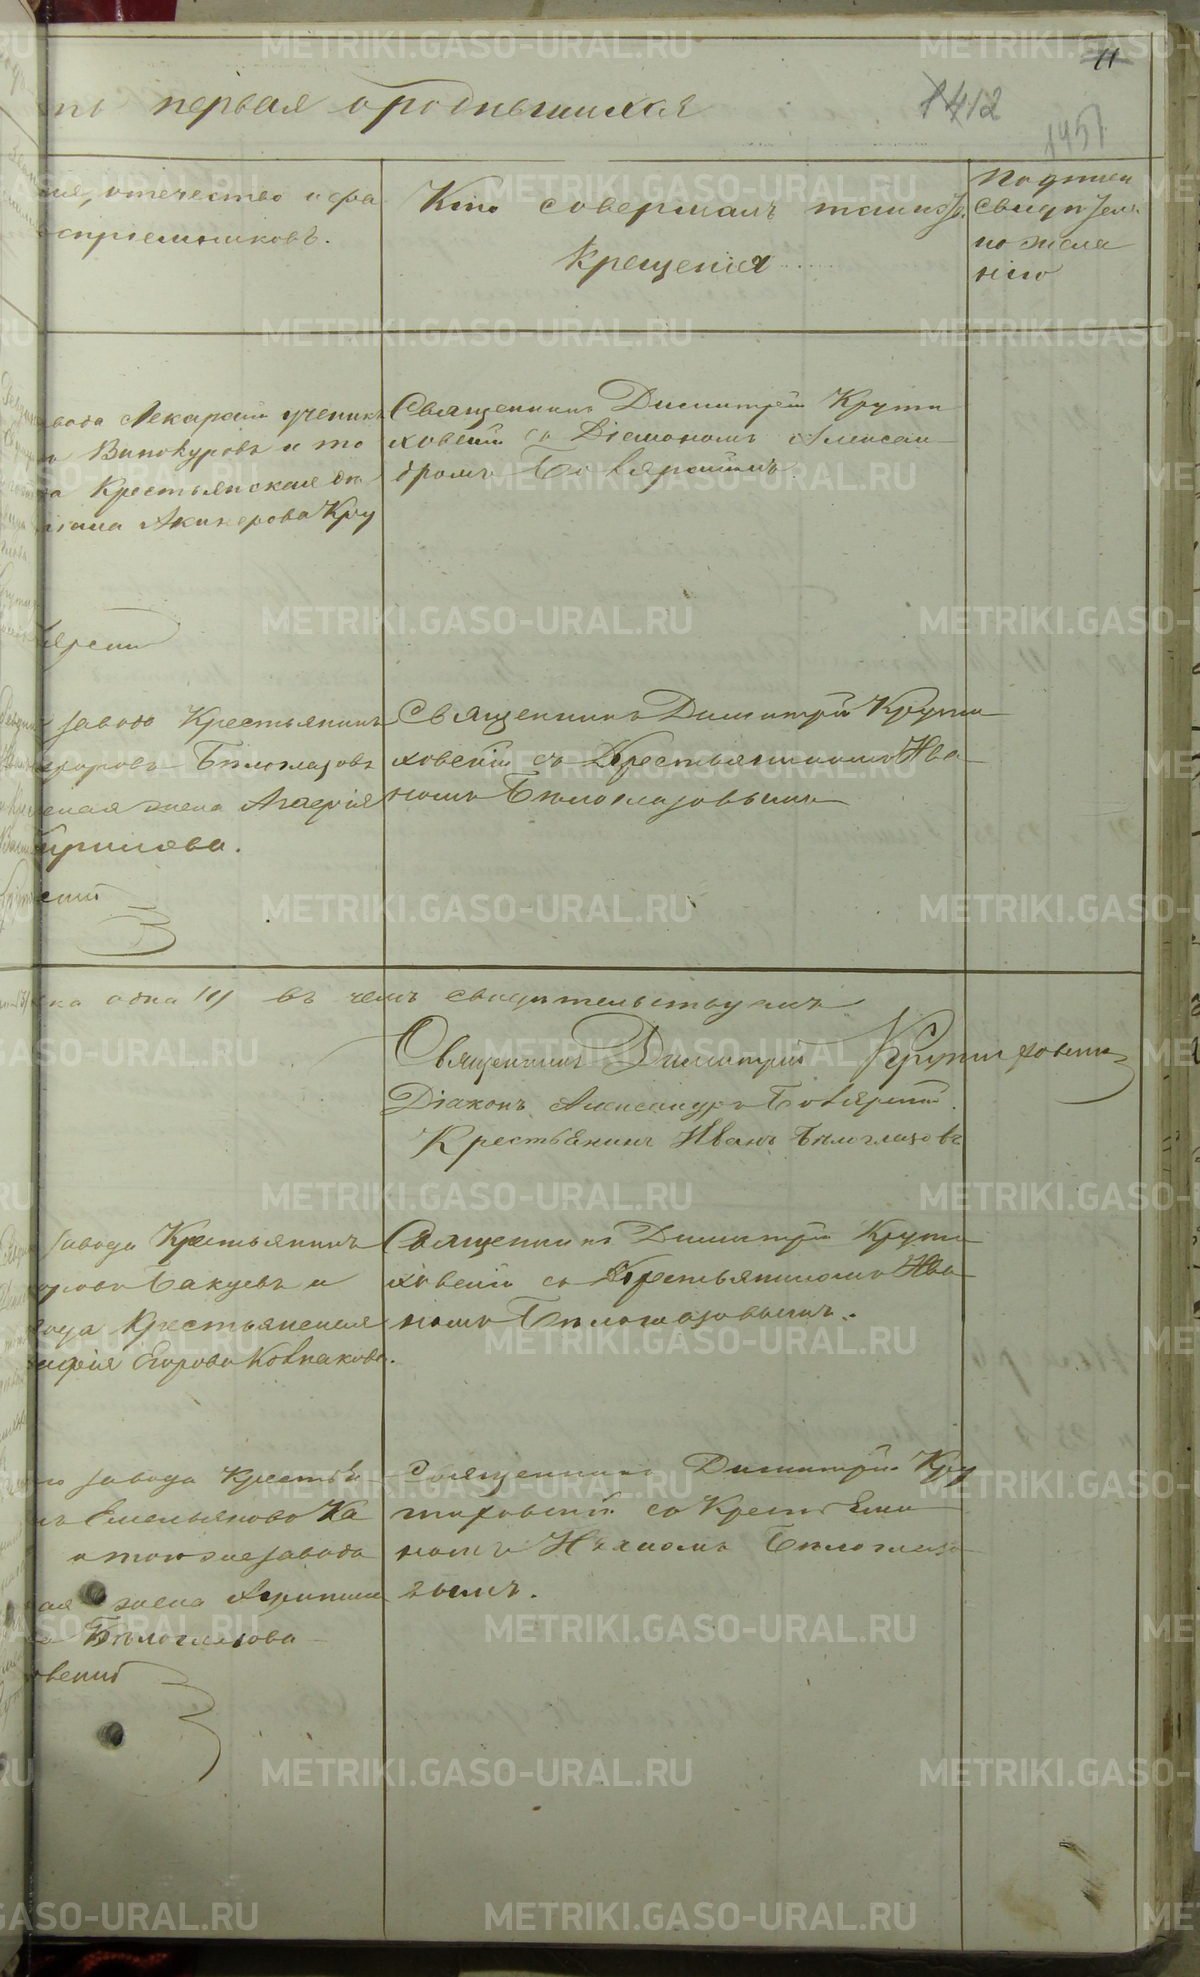 11
ть первая о родившихся
412
1451
мя, отечество и фа
спріемниковъ.
Кто совершалъ таинство
Крещенія
Подписи
свидѣтеля
по жела
нію
вода Лекарскій ученикъ
Винокуровъ и то
а Крестьянская до
Акинерова Кру
Священникъ Димитрій Крути
ховскій со Діакономъ Алексан
дромъ Боярскимъ
ярскій
завода Крестьянинъ
Бѣлоглазовъ
ская жена Агафія
Кирилова.
скій
Священникъ Димитрій Крути
ховскій съ Крестьяниномъ Ива
номъ Бѣлоглазовымъ
ка одна /1/ въ чемъ свидѣтельствуемъ
Священникъ Димитрій Крутиховскій
Діаконъ Александръ Боярскій
Крестьянинъ Иванъ Бѣлоглазовъ
завода Крестьянинъ
Бакуевъ и
вода Крестьянская
Егорова Колпакова.
Священникъ Димитрій Крути
ховскій со Крестьяниномъ Ива
номъ Бѣлоглазовымъ.
го завода Крестья
ъ Емельяновъ Ка
а того же завода
ая жена Агрипина
Бѣлоглазова
овскій
Священникъ Димитрій Кру
тиховскій со Крестьяни
номъ Иваномъ Бѣлоглазо
вымъ.
METRIKI.GASO-URAL.RU